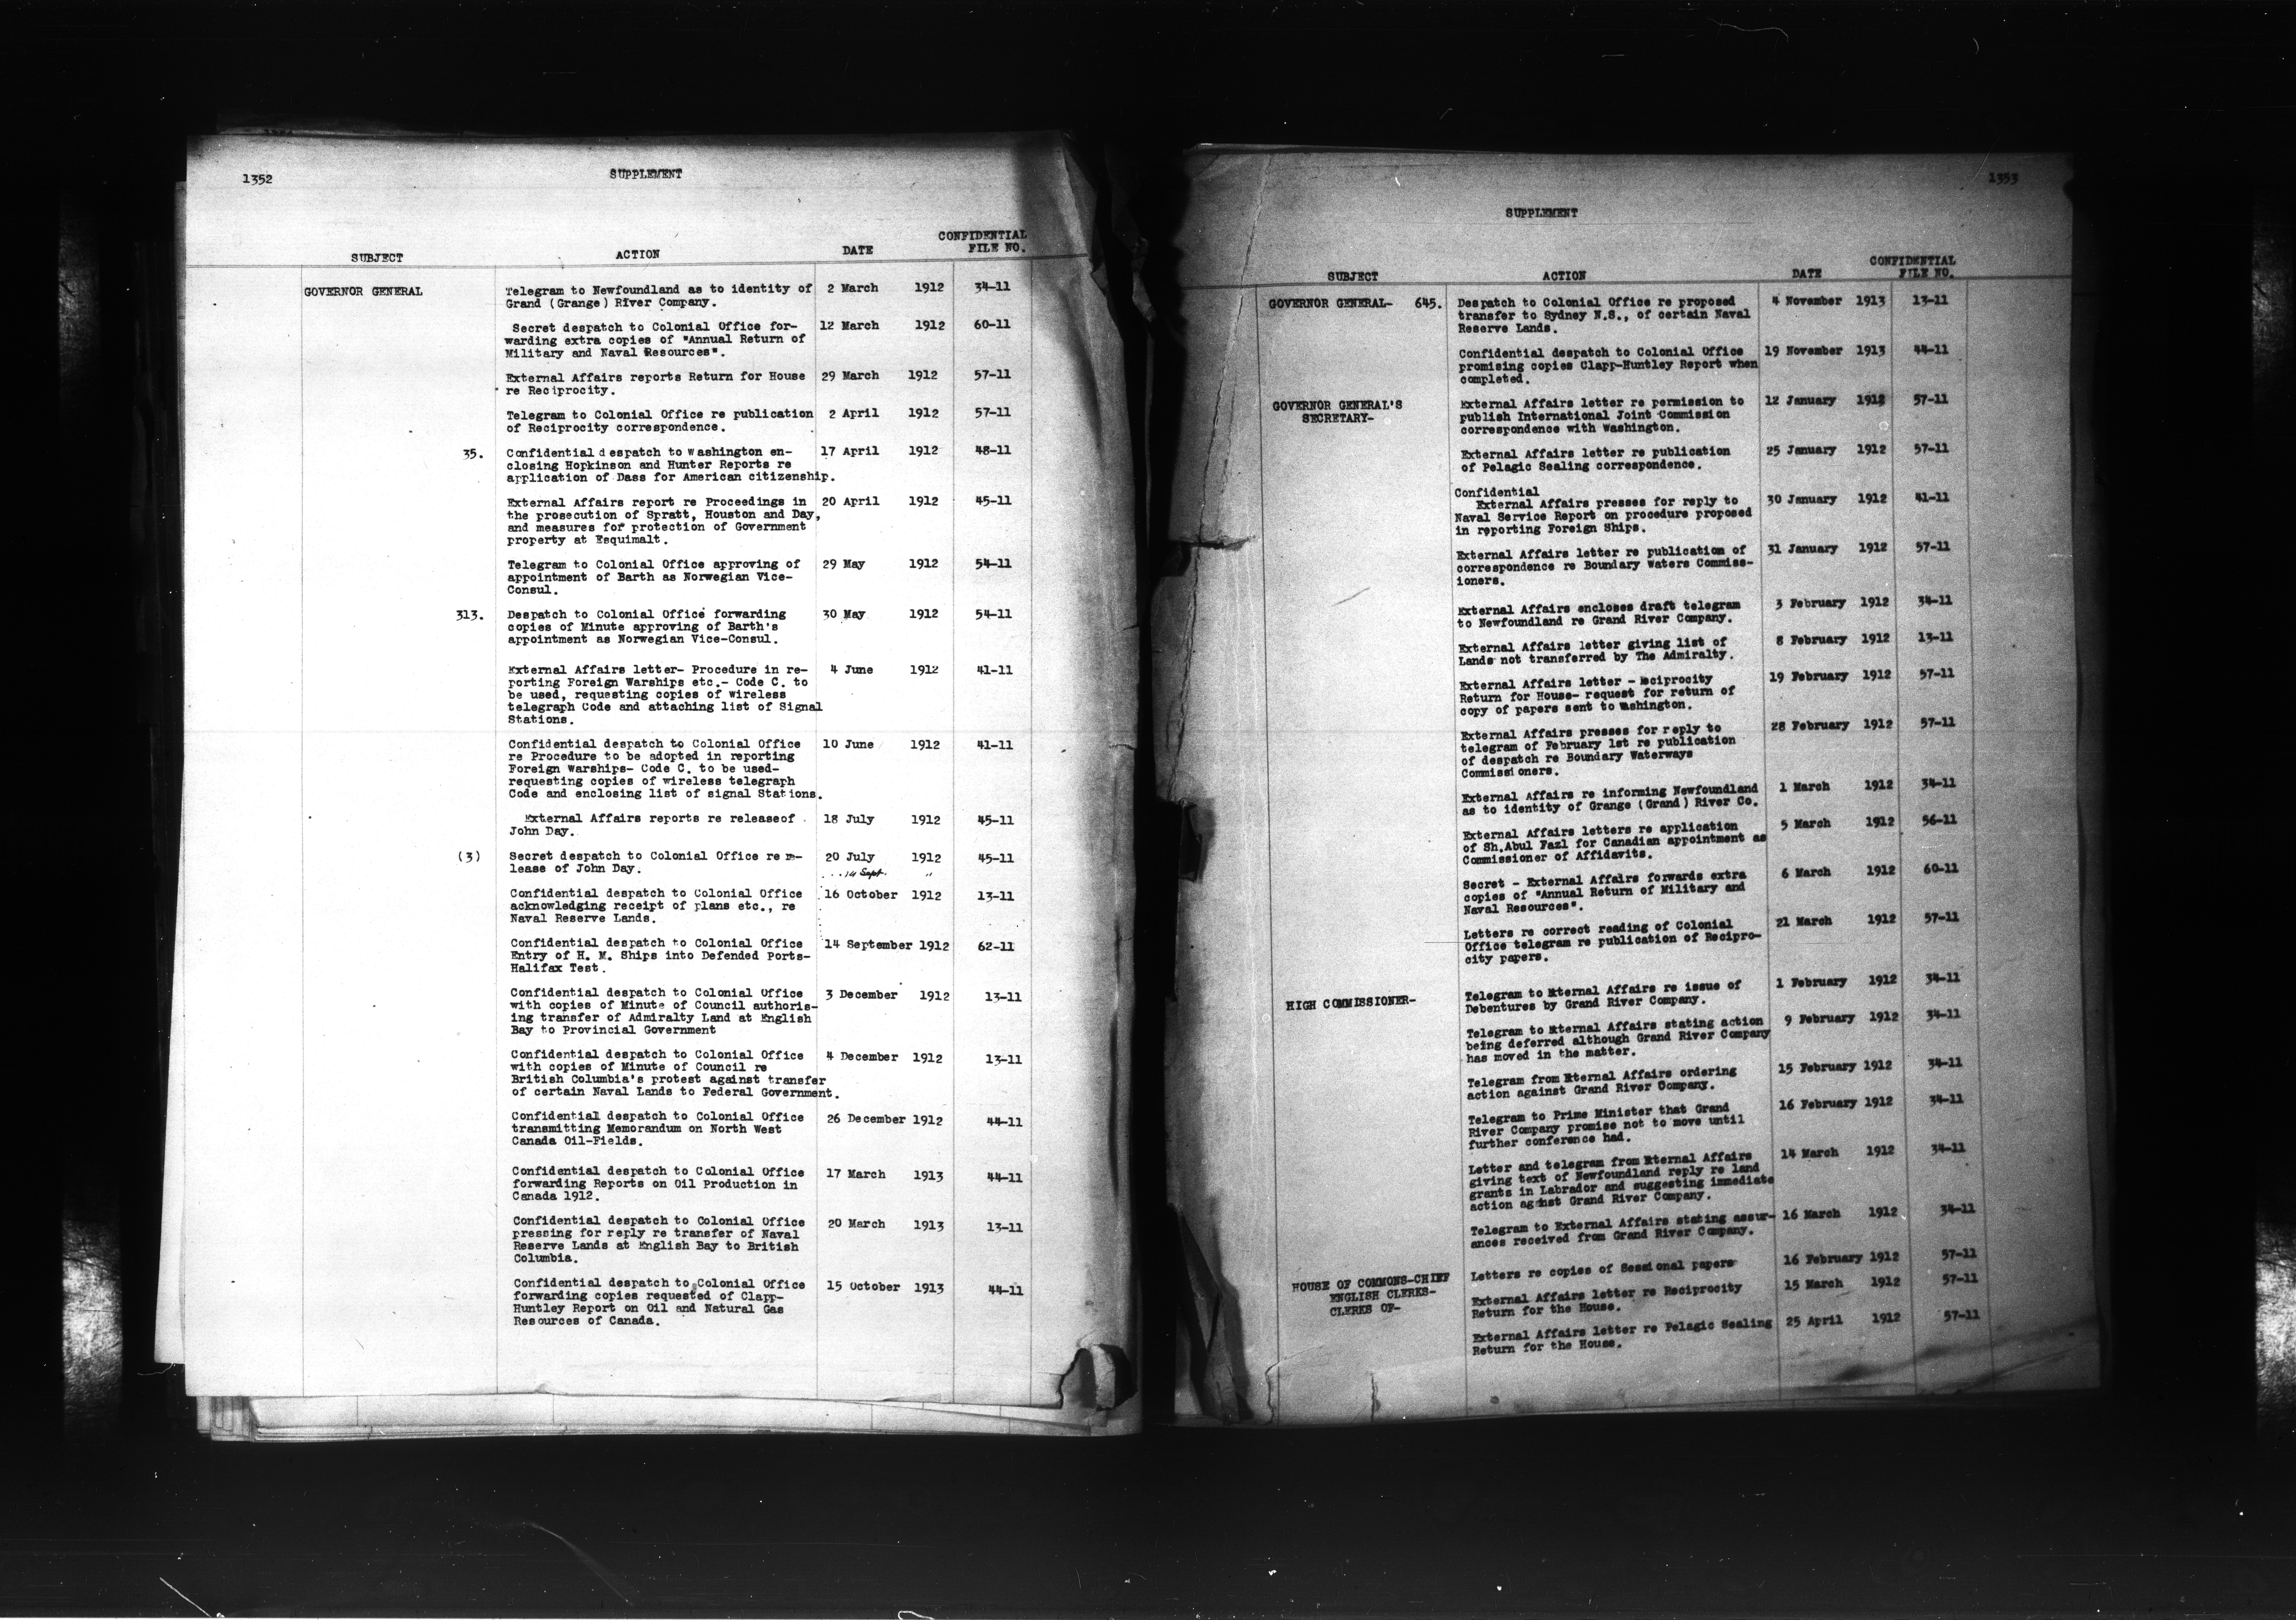 1352
SUPPLEMENT
SUBJECT ACTION DATE CONFIDENTIAL FILE NO.
GOVERNOR GENERAL Telegram to Newfoundland as to identity of 2 March 1912 34-11
Grand (Grange) River Company.
Secret despatch to Colonial Office for- 12 March 1912 60-11
warding extra copies of "Annual Return of
Military and Naval Resources".
External Affairs reports Return for House 29 March 1912 57-11
re Reciprocity.
Telegram to Colonial Office re publication 2 April 1912 57-11
of Reciprocity correspondence.
35. Confidential despatch to Washington en- 17 April 1912 48-11
closing Hopkinson and Hunter Reports re
application of Dass for American citizenship.
External Affairs report re Proceedings in 20 April 1912 45-11
the prosecution of Spratt, Houston and Day,
and measures for protection of Government
property at Esquimalt.
Telegram to Colonial Office approving of 29 May 1912 54-11
appointment of Barth as Norwegian Vice-
Consul.
313. Despatch to Colonial Office forwarding 30 May 1912 54-11
copies of Minute approving of Barth's
appointment as Norwegian Vice-Consul.
External Affairs letter- Procedure in re- 4 June 1912 41-11
porting Foreign Warships etc.- Code C. to
be used, requesting copies of wireless
telegraph Code and attaching list of Signal
Stations.
Confidential despatch to Colonial Office 10 June 1912 41-11
re Procedure to be adopted in reporting
Foreign Warships- Code C. to be used-
requesting copies of wireless telegraph
Code and enclosing list of signal Stations.
External Affairs reports re releaseof 18 July 1912 45-11
John Day.
(3) Secret despatch to Colonial Office re re- 20 July 1912 45-11
lease of John Day. 14 Sept. "
Confidential despatch to Colonial Office 16 October 1912 13-11
acknowledging receipt of plans etc., re
Naval Reserve Lands.
Confidential despatch to Colonial Office 14 September 1912 62-11
Entry of H. M. Ships into Defended Ports-
Halifax Test.
Confidential despatch to Colonial Office 3 December 1912 13-11
with copies of Minute of Council authoris-
ing transfer of Admiralty Land at English
Bay to Provincial Government
Confidential despatch to Colonial Office 4 December 1912 13-11
with copies of Minute of Council re
British Columbia's protest against transfer
of certain Naval Lands to Federal Government.
Confidential despatch to Colonial Office 26 December 1912 44-11
transmitting Memorandum on North West
Canada Oil-Fields.
Confidential despatch to Colonial Office 17 March 1913 44-11
forwarding Reports on Oil Production in
Canada 1912.
Confidential despatch to Colonial Office 20 March 1913 13-11
pressing for reply re transfer of Naval
Reserve Lands at English Bay to British
Columbia.
Confidential despatch to Colonial Office 15 October 1913 44-11
forwarding copies requested of Clapp-
Huntley Report on Oil and Natural Gas
Resources of Canada.
1353
SUPPLEMENT
SUBJECT ACTION DATE CONFIDENTIAL FILE NO.
GOVERNOR GENERAL- 645. Despatch to Colonial Office re proposed 4 November 1913 13-11
transfer to Sydney N.S., of certain Naval
Reserve Lands.
Confidential despatch to Colonial Office 19 November 1913 44-11
promising copies Clapp-Huntley Report when
completed.
GOVERNOR GENERAL'S External Affairs letter re permission to 12 January 1912 57-11
SECRETARY- publish International Joint Commission
correspondence with Washington.
External Affairs letter re publication 25 January 1912 57-11
of Pelagic Sealing correspondence.
Confidential
External Affairs presses for reply to 30 January 1912 41-11
Naval Service Report on procedure proposed
in reporting Foreign Ships.
External Affairs letter re publication of 31 January 1912 57-11
correspondence re Boundary Waters Commiss-
ioners.
External Affairs encloses draft telegram 3 February 1912 34-11
to Newfoundland re Grand River Company.
External Affairs letter giving list of 8 February 1912 13-11
Lands not transferred by The Admiralty.
External Affairs letter - Reciprocity 19 February 1912 57-11
Return for House- request for return of
copy of papers sent to Washington.
External Affairs presses for reply to 28 February 1912 57-11
telegram of February 1st re publication
of despatch re Boundary Waterways
Commissioners.
External Affairs re informing Newfoundland 1 March 1912 34-11
as to identity of Grange (Grand) River Co.
External Affairs letters re application 5 March 1912 56-11
of Sh.Abul Fazl for Canadian appointment as
Commissioner of Affidavits.
Secret - External Affairs forwards extra 6 March 1912 60-11
copies of "Annual Return of Military and
Naval Resources".
Letters re correct reading of Colonial 21 March 1912 57-11
Office telegram re publication of Recipro-
city papers.
HIGH COMMISSIONER- Telegram to External Affairs re issue of 1 February 1912 34-11
Debentures by Grand River Company.
Telegram to External Affairs stating action 9 February 1912 34-11
being deferred although Grand River Company
has moved in the matter.
Telegram from External Affairs ordering 15 February 1912 34-11
action against Grand River Company.
Telegram to Prime Minister that Grand 16 February 1912 34-11
River Company promise not to move until
further conference had.
Letter and telegram from External Affairs 14 March 1912 34-11
giving text of Newfoundland reply re land
grants in Labrador and suggesting immediate
action against Grand River Company.
Telegram to External Affairs stating assur- 16 March 1912 34-11
ances received from Grand River Company.
HOUSE OF COMMONS-CHIEF Letters re copies of Sessional papers 16 February 1912 57-11
ENGLISH CLERKS- External Affairs letter re Reciprocity 15 March 1912 57-11
CLERKS OF- Return for the House.
External Affairs letter re Pelagic Sealing 25 April 1912 57-11
Return for the House.